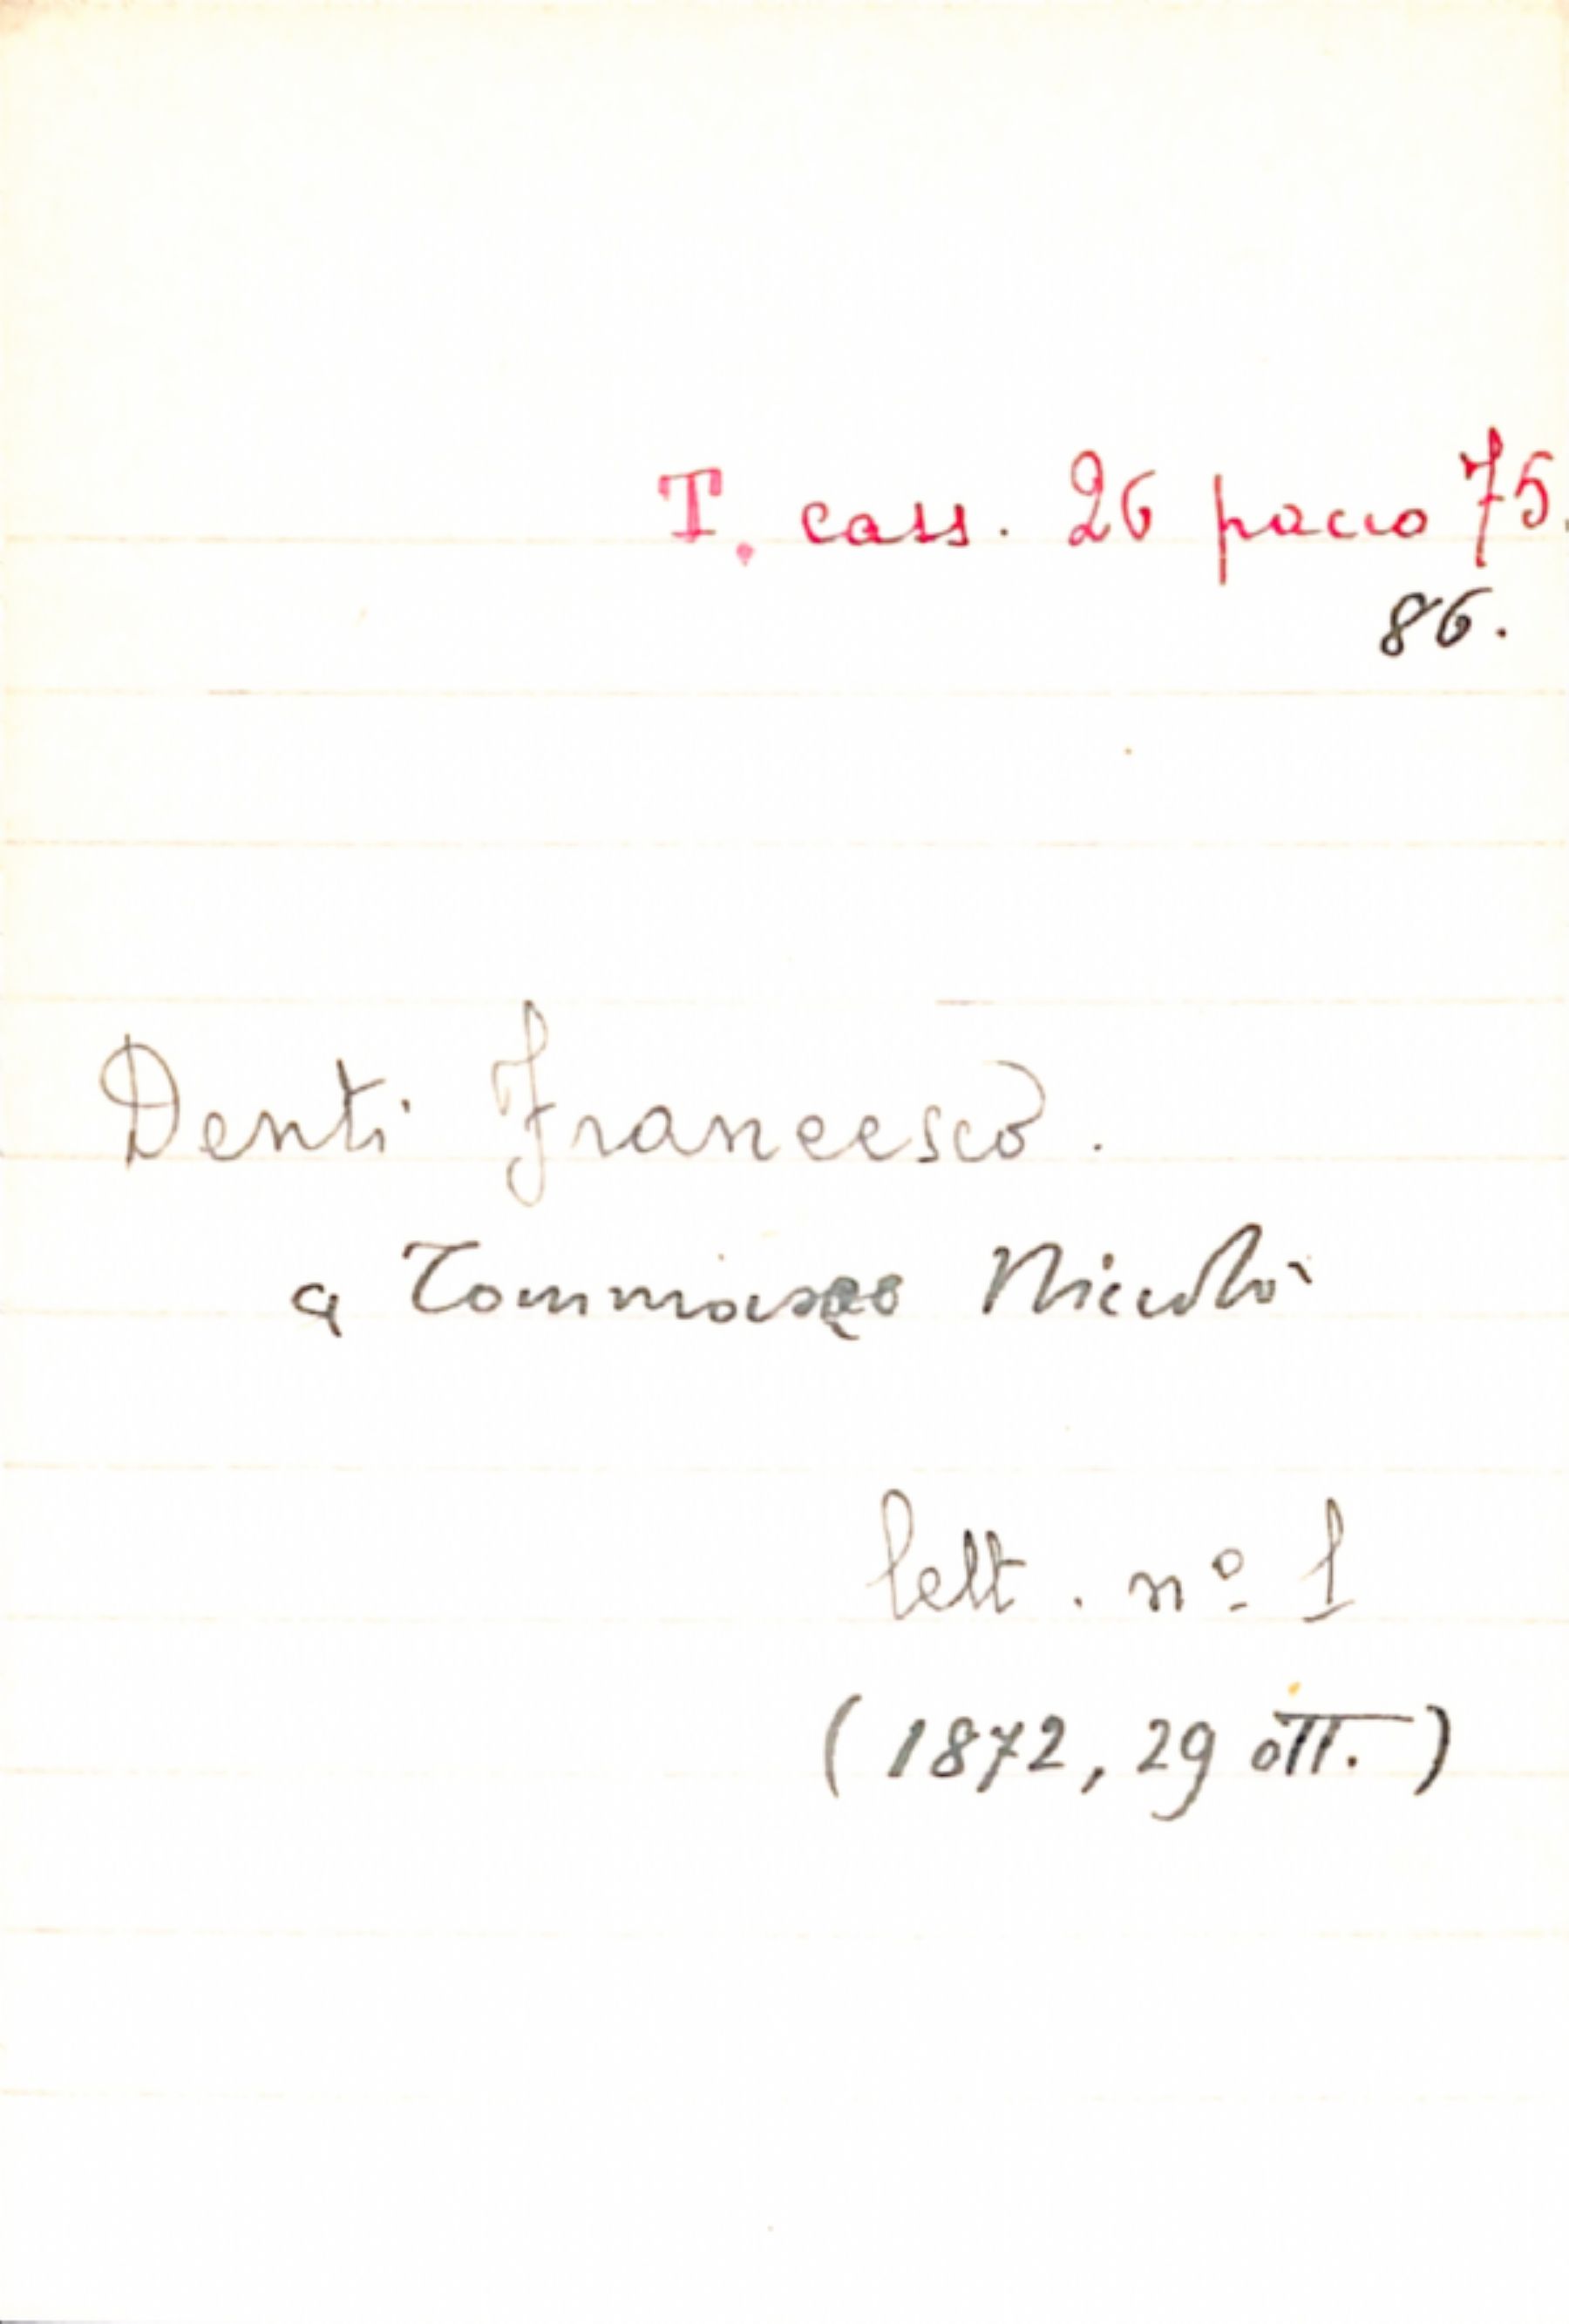 T. cass. 26 pacco 75.
86.
Denti Francesco.
a Tommaseo Niccolò
lett. nº 1
(1872, 29 ott.)